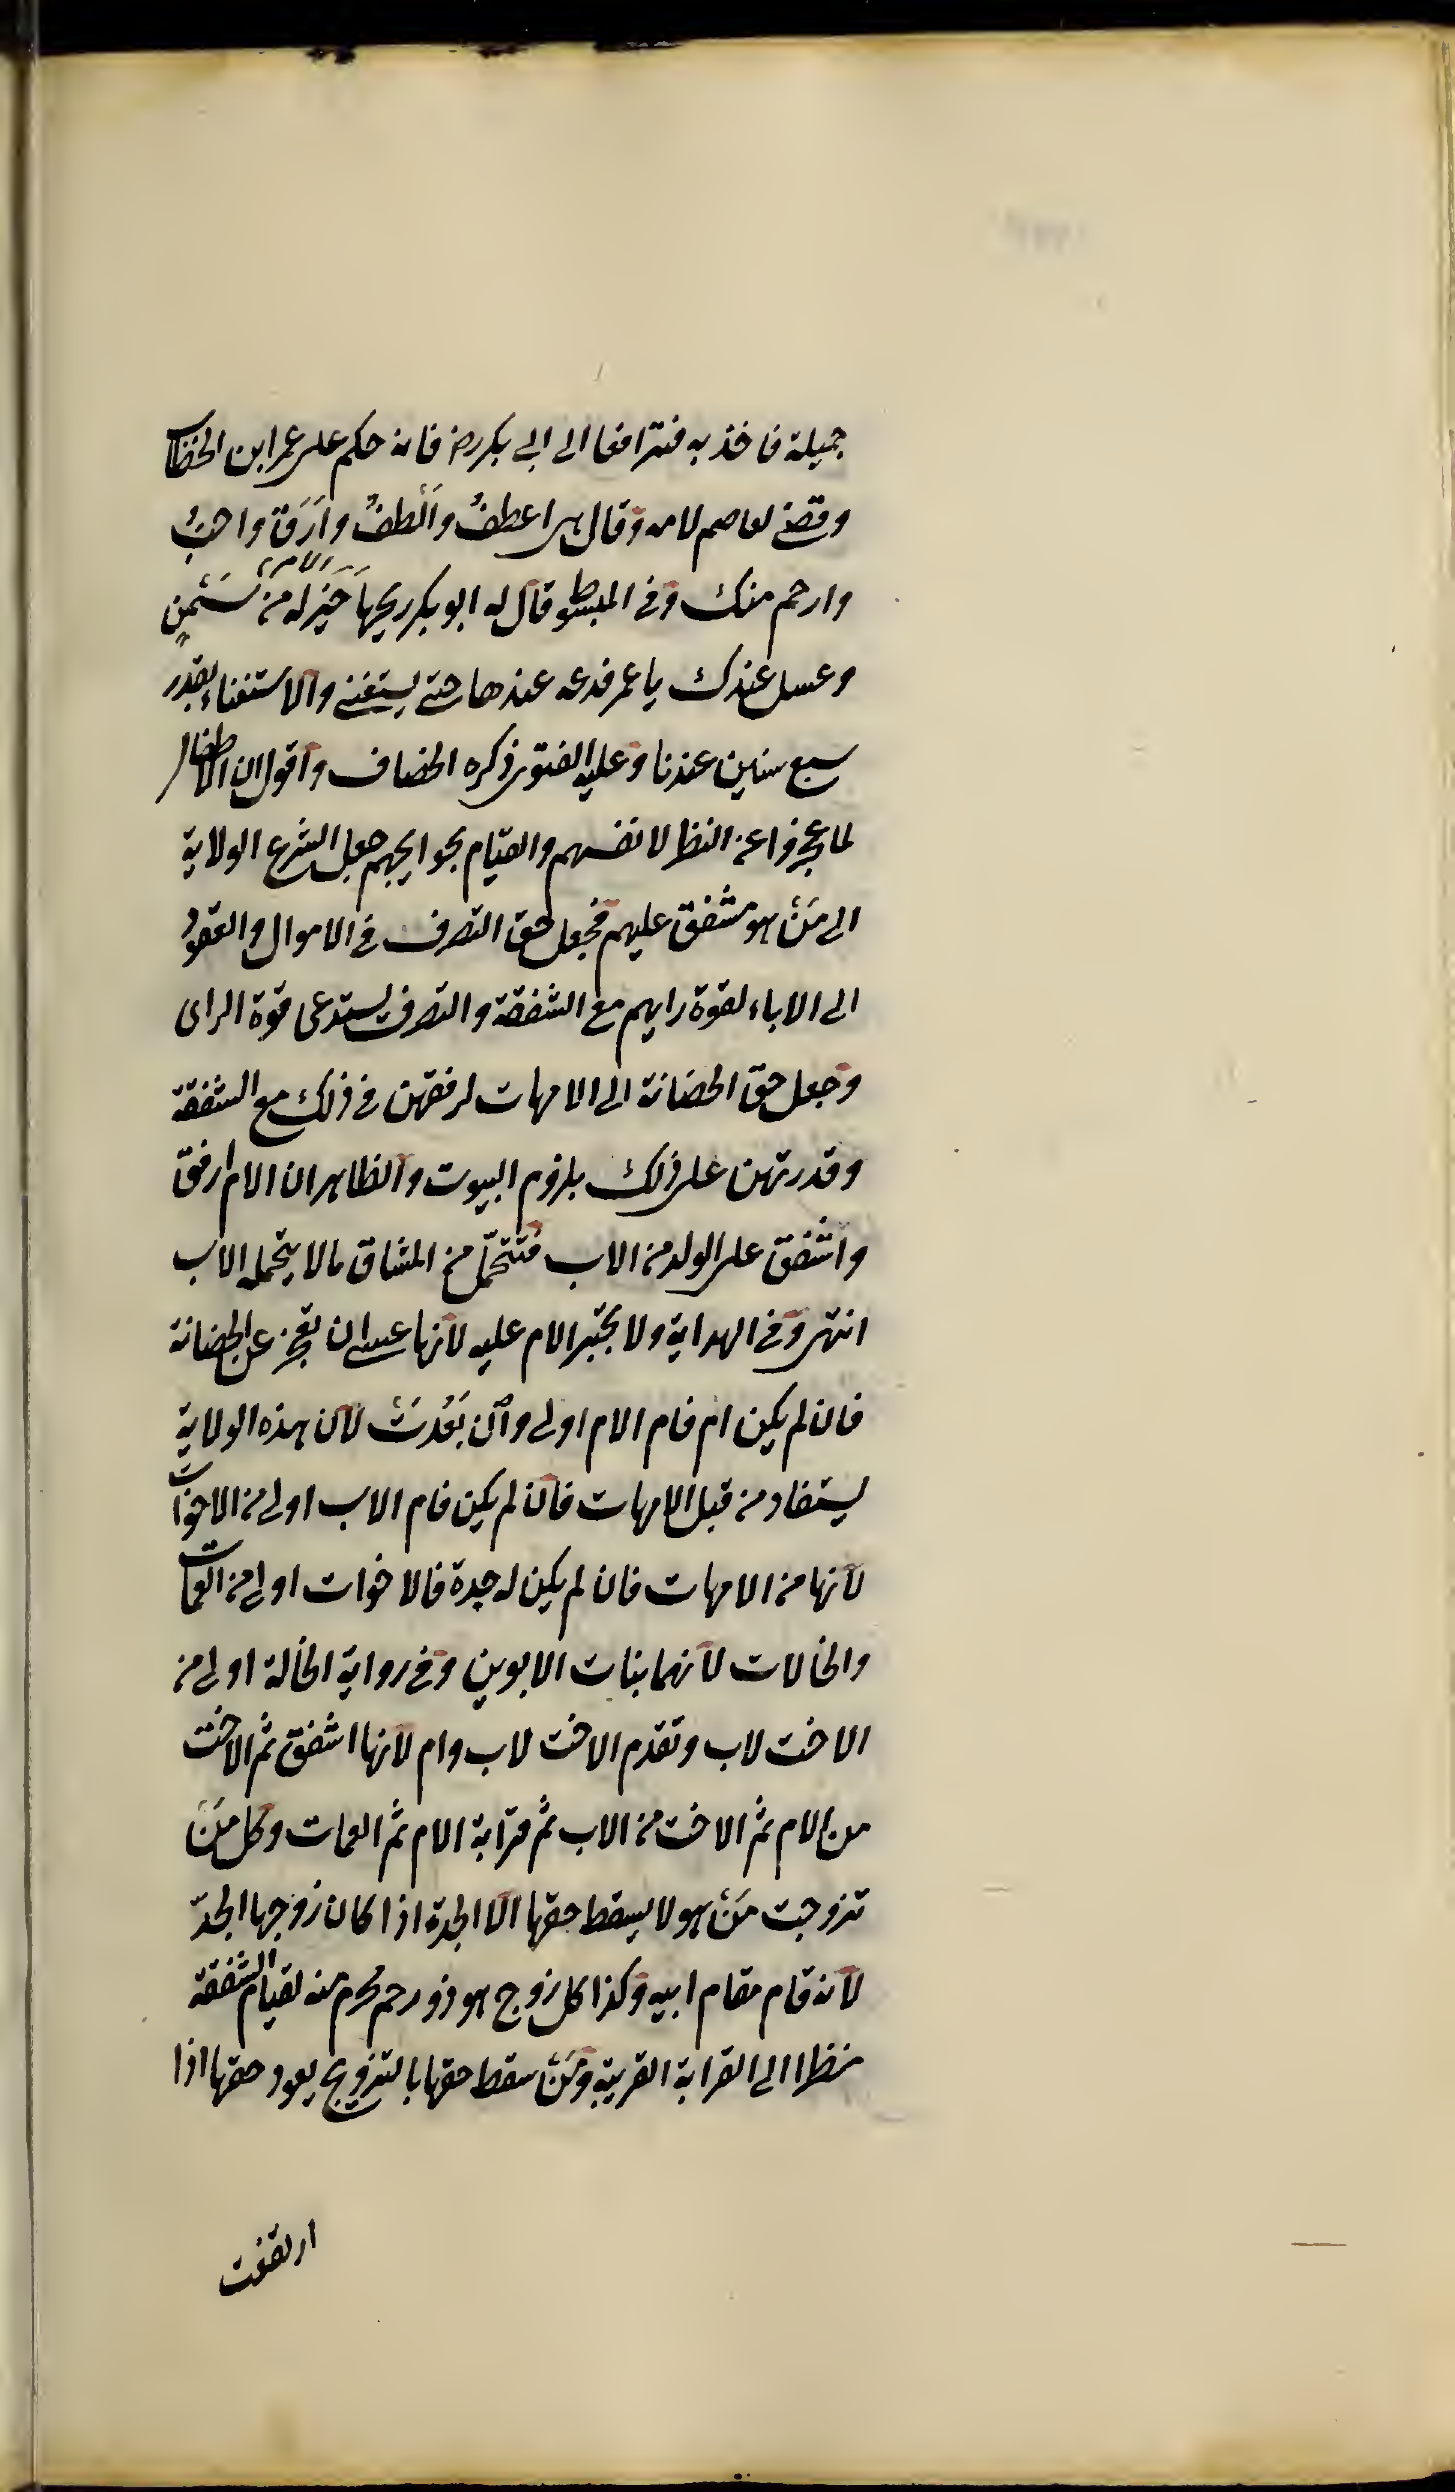 جميلة فاخذ به فترافعا الى ابى بكر رض فانه حكم على عمر ابن الخطاب
وقضى لعاصم لامه وقال هى اعطفُ والْطفُ واَرَق واحبُّ
وارحم منك وفى المبسوط قال له ابو بكر ريحها خَيْر له من سَمْنٍ
وعسل عندك يا عمر فدعه عندها حتى يستغنى والاستغناء بقدر
سبع سنين عندنا وعليه الفتوى ذكره الخصاف واقول ان الاطفال
لما عجزوا عن النظر لانفسهم والقيام بحوايجهم جعل الشرع الولاية
الى مَنْ هو مشفق عليهم فجعل حق التصرف فى الاموال والعقودُ
الى الاباء لقوة رايهم مع الشفقة والتصرف يستدعى قوة الراى
وجعل حق الحضانة الى الامهات لرفقهن فى ذلك مع الشفقة
وقدرتهن على ذلك بلزوم البيوت والظاهر ان الام ارفق
واشفق على الولد من الاب فتتحمّل من المشاق مالا يتحمله الاب
انتهى وفى الهداية ولا تجبر الام عليه لانها عسى ان تعجز عن الحضانة
فان لم يكن ام فام الام اولى وان بَعُدَتْ لان هذه الولاية
يستفاد من قبل الامهات فان لم يكن فام الاب اولى من الاخوات
لانها من الامهات فان لم يكن له جدة فالاخوات اولى من العمات
والخالات لانهما بنات الابوين وفى رواية الخالة اولى من
الاخت لاب وتقدم الاخت لاب وام لانها اشفق ثم الاخت
من الام ثم الاخت من الاب ثم قرابة الام ثم العمات وكل مَنْ
تزوجت مَنْ هولا يسقط حقها الا الجدة اذا كان زوجها الجدّ
لانه قام مقام ابيه وكذا كل زوج هو ذو رحم محرم منه لقيام الشفقة
نظرا الى القرابة القريبة ومَنْ سقط حقها بالتزويج يعود حقها اذا
ارتفعت